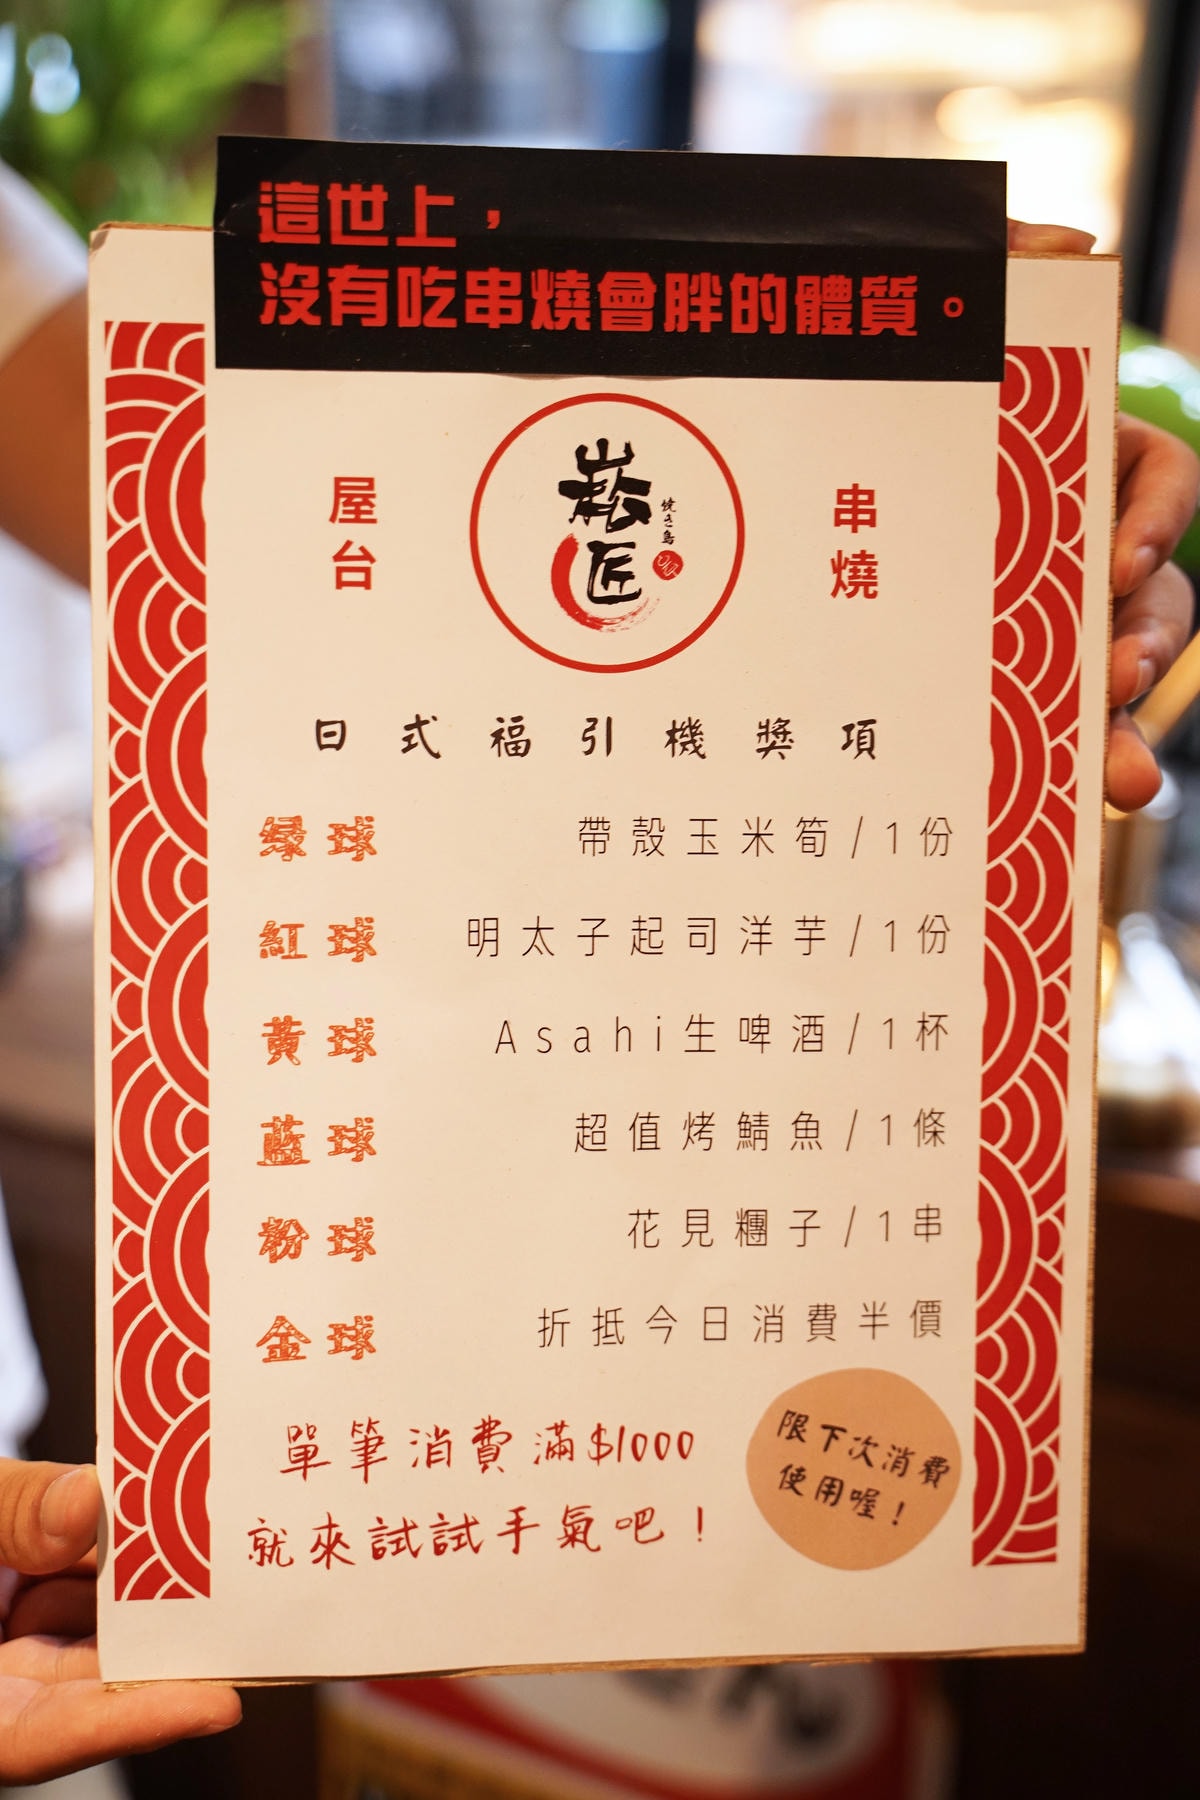 這世上，
沒有吃串燒會胖的體質。
屋台
崧匠
焼き鳥
串燒
日式福引機獎項
绿球 帶殼玉米筍/1份
紅球 明太子起司洋芋/1份
黃球 Asahi生啤酒/1杯
藍球 超值烤鯖魚/1條
粉球 花見糰子/1串
金球 折抵今日消費半價
單筆消費滿$1000
就來試試手氣吧！
限下次消費
使用喔！